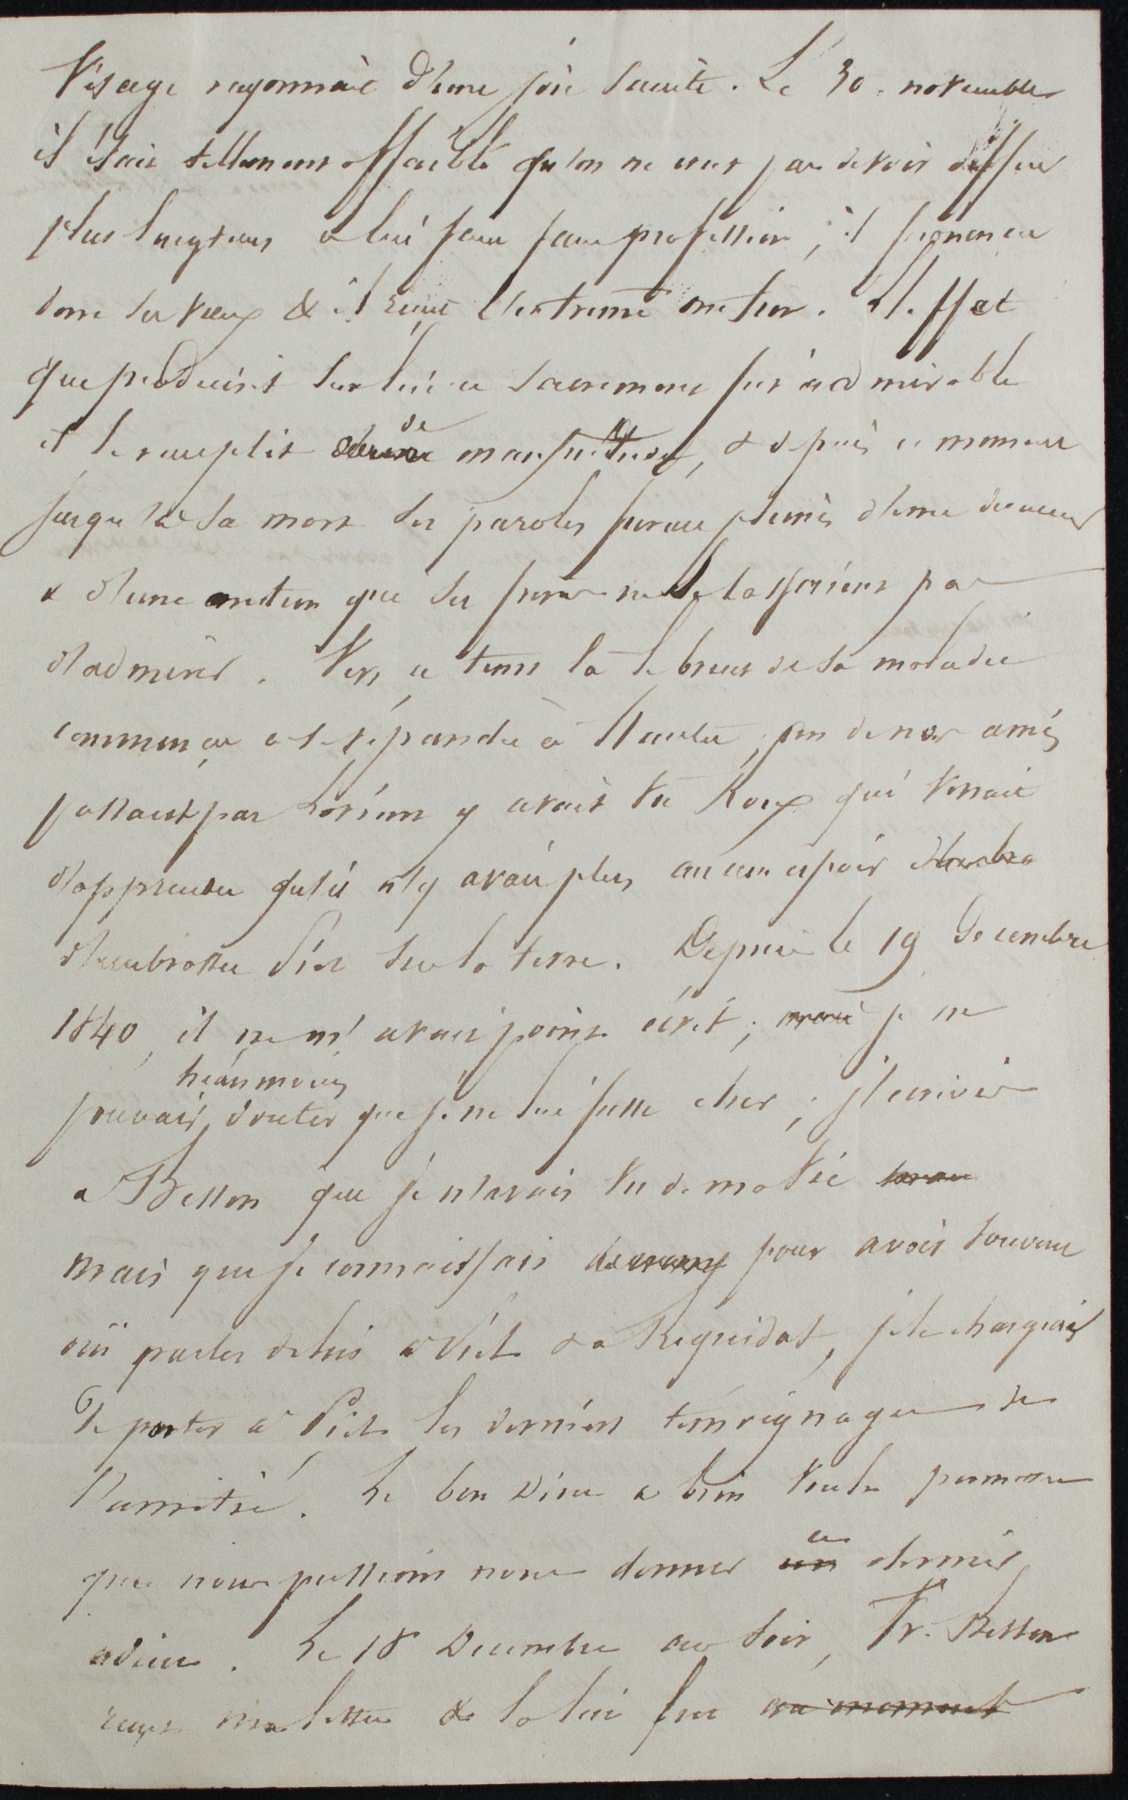 visage rayonnait d'une joie sainte. Le 30. novembre
il était tellement affaibli qu'on ne crut pas devoir différer
plus longtems à lui faire faire profession ; il prononca
donc ses vœux & il recut l'extreme onction. L'effet
que produisit sur lui ce sacrement fut admirable
et le remplit de mansuétude, & depuis ce moment
jusqu'à sa mort ses paroles furent pleines d'une douceur
& d'une onction que ses freres ne se lassaient pas
d'admirer. Vers ce tems là le bruit de sa maladie
commença à se répandre à Nantes, un de nos amis
passant par Lorient y avait vu Roux qui venait
d'apprendre qu'il n'y avait plus aucun espoir
d'embrasser Piel sur la terre. Depuis le 19 Decembre
1840, il ne m'avait point écrit ; je ne
pouvais néanmoins douter que je ne lui fusse cher ; j'écrivis
a Besson que je n'avais vu de ma vie
mais que je connaissais pour avoir souvent
oui parler de lui a Piel & a Requedat, je le chargeais
de porter à Piel les derniers témoignages de
l'amitié. Le bon Dieu a bien voulu permettre
que nous pussions nous donner ce dernier
adieu. Le 18 Decembre au soir, Fr. Besson
recut ma lettre & la lui lut au moment